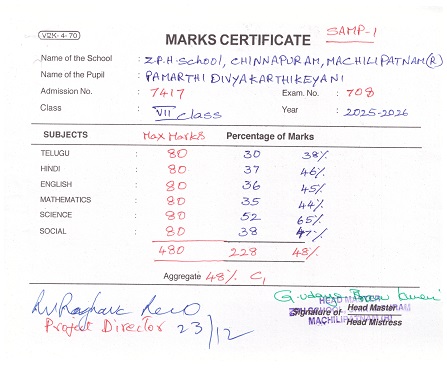 VIZK- 4- 70
SAMP-1
MARKS CERTIFICATE
Name of the School : Z.P.H-School, CHINNAPURAM, MACHILIPATNAM(R)
Name of the Pupil : PAMARTHI DIVYAKARTHIKEYANI
Admission No. : 7417 Exam. No. : 708
Class : VII class Year : 2025-2026
SUBJECTS Max Marks Percentage of Marks
TELUGU : 80 30 38%
HINDI : 80 37 46%
ENGLISH : 80 36 45%
MATHEMATICS : 80 35 44%
SCIENCE : 80 52 65%
SOCIAL : 80 38 47%
480 228 48%
Aggregate 48% C1
Project Director 23/12
HEAD
Signature of Head Master
MACHILIPATNAM
Head Mistress